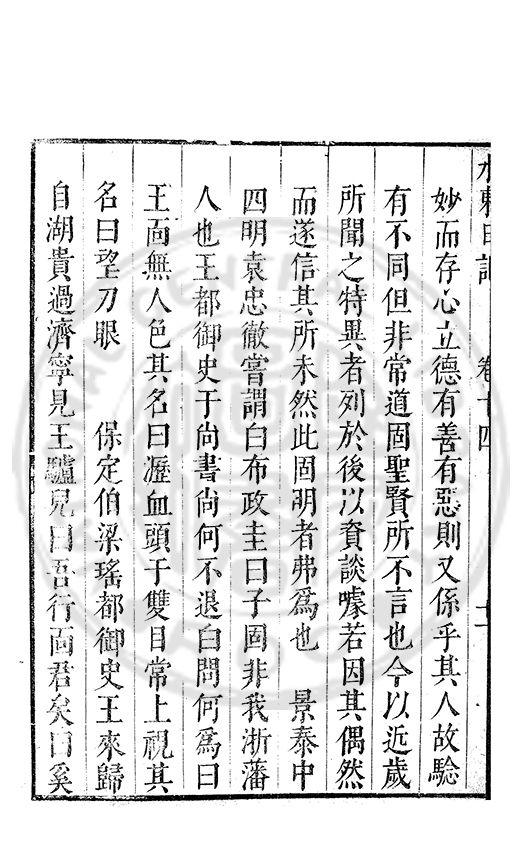 水東日記 卷十四
妙而存心立德有善有惡則又係乎其人故驗
有不同但非常道固聖賢所不言也今以近歲
所聞之特異者列於後以資談噱若因其偶然
而遂信其所未然此固明者弗爲也　景泰中
四明袁忠徹嘗謂白布政圭曰子固非我浙藩
人也王都御史于尚書尚何不退白問何爲曰
王面無人色其名曰瀝血頭于雙目常上視其
名曰望刀眼　　保定伯梁瑤都御史王來歸
自湖貴過濟寧見王驢兒曰吾行面君矣曰奚